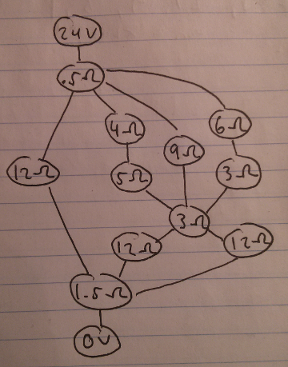 24V
.5Ω
4Ω
6Ω
9Ω
12Ω
5Ω
3Ω
3Ω
12Ω
12Ω
1.5Ω
0V